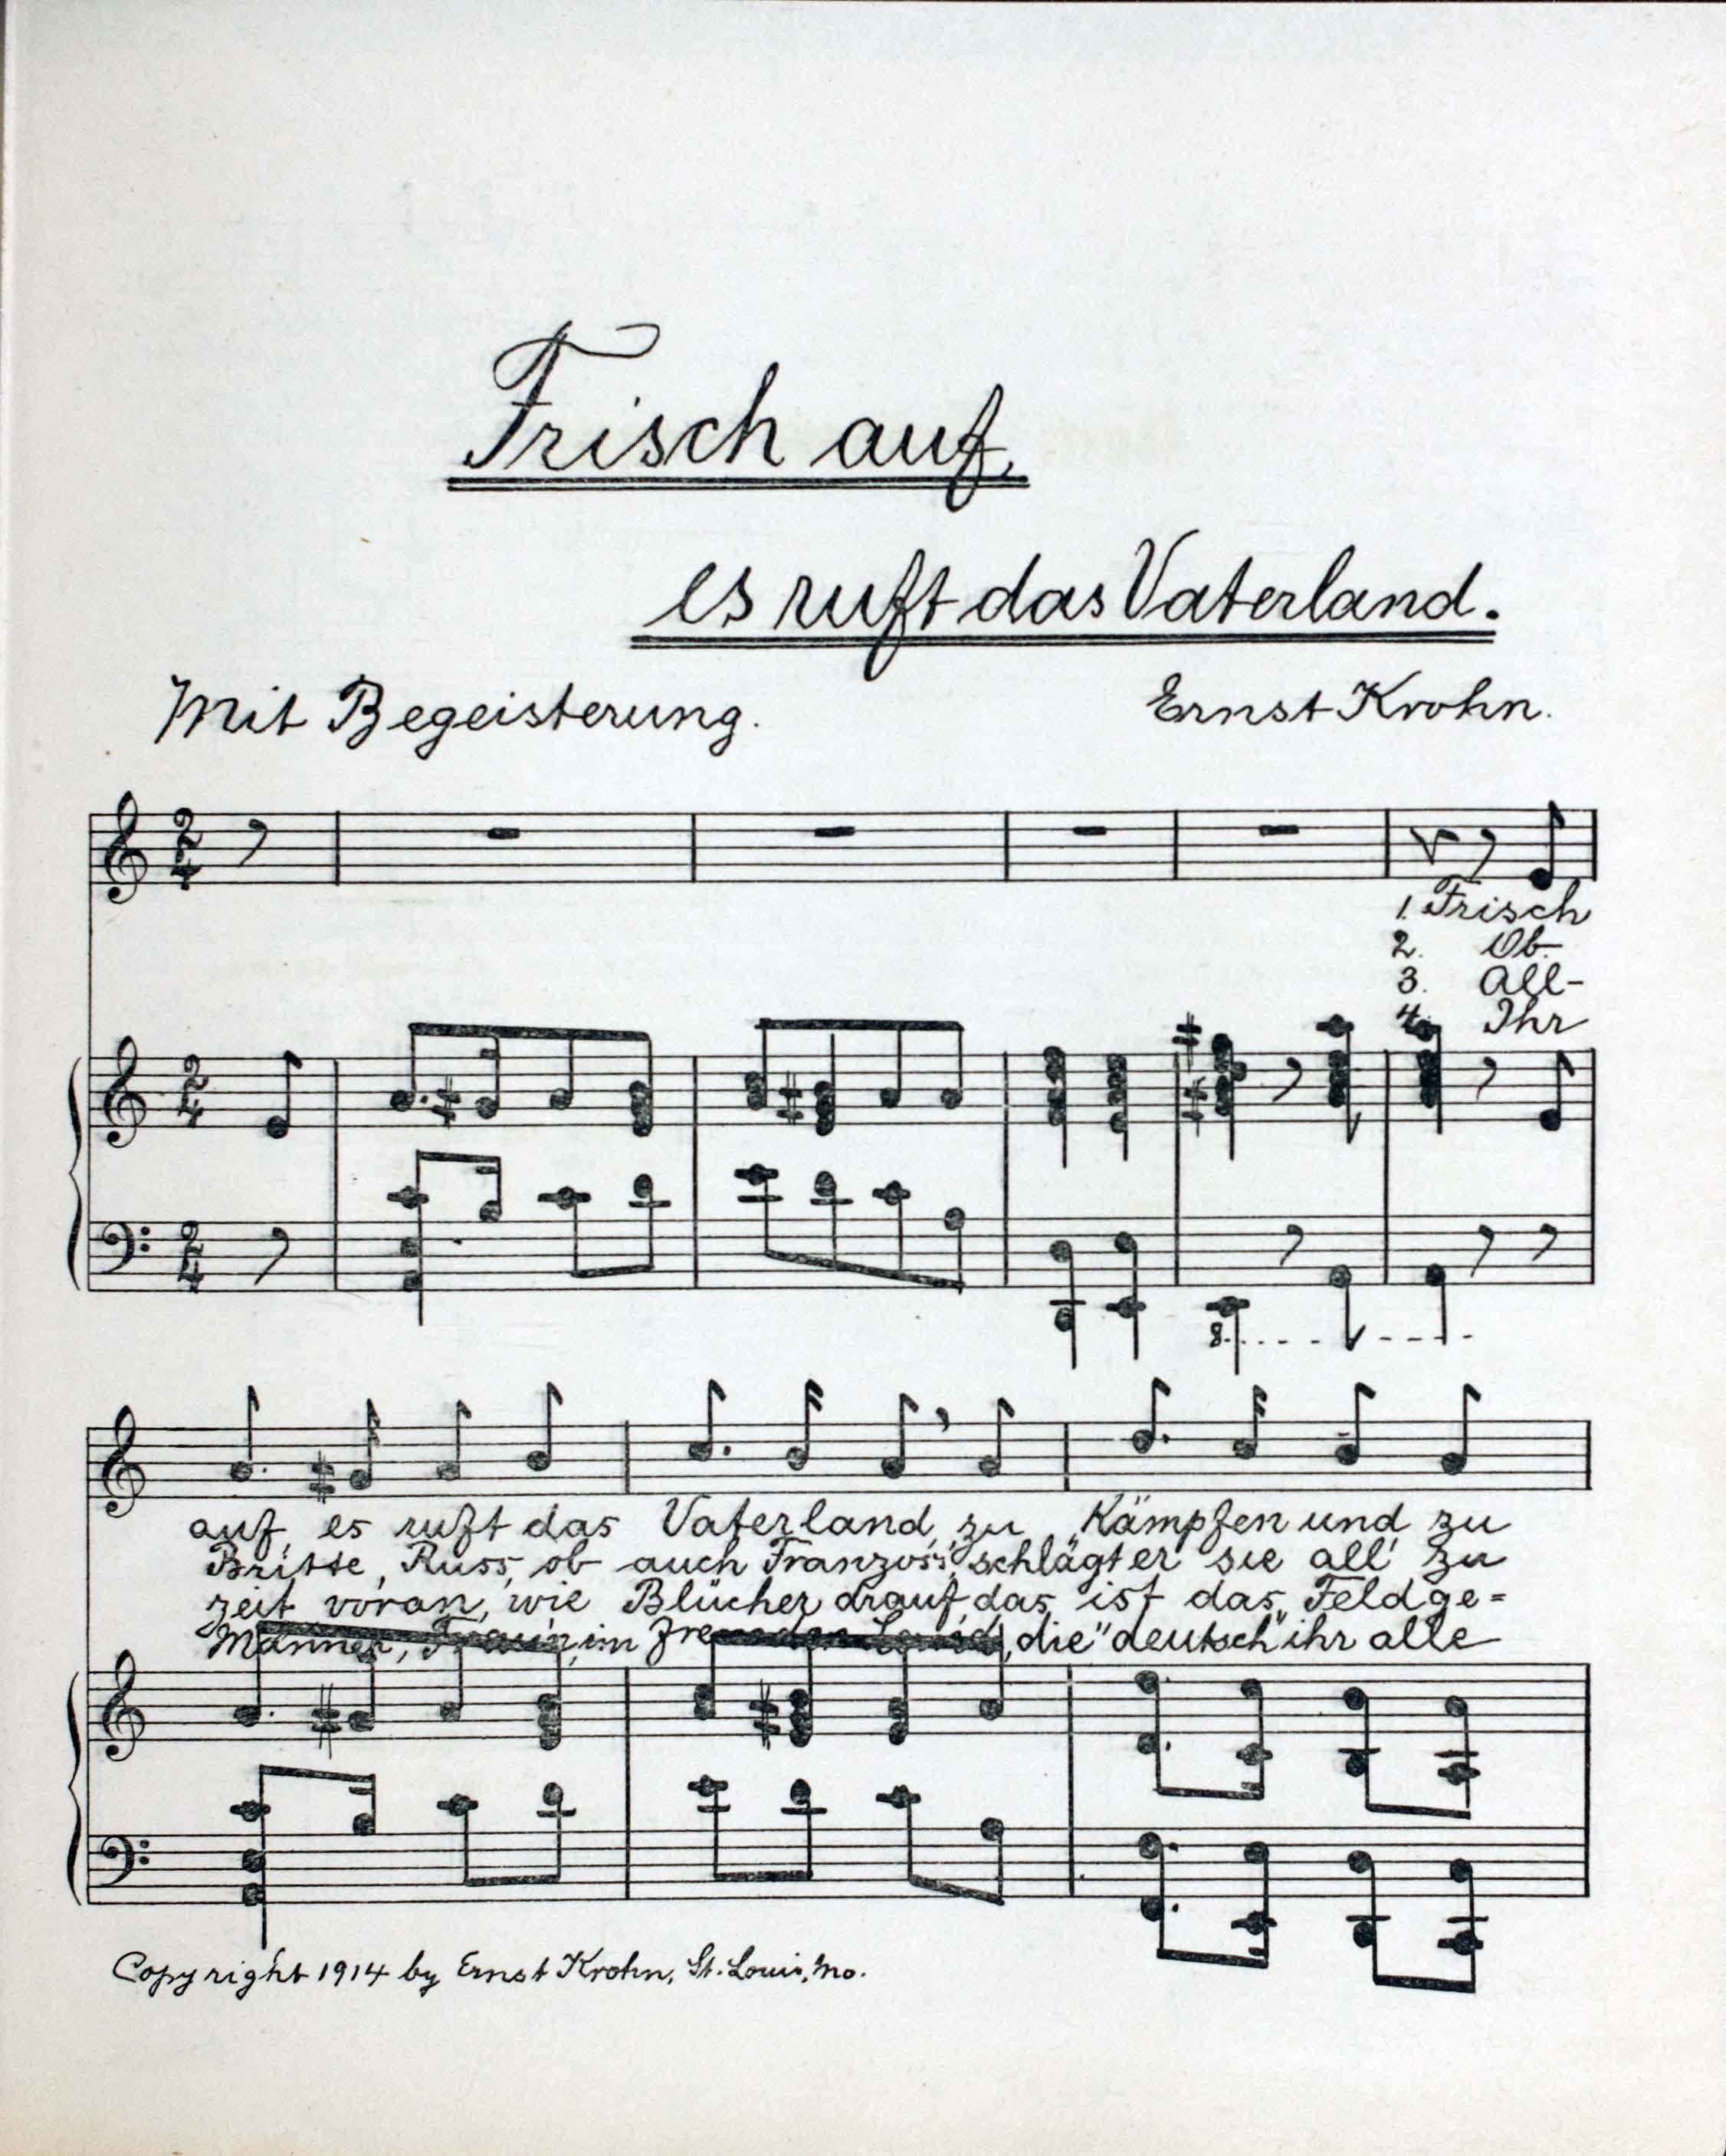 Frisch auf,
es ruft das Vaterland.
Mit Begeisterung.
Ernst Krohn.
1. Frisch
2. Ob
3. All-
4. Ihr
8
auf, es ruft das Vaterland, zu Kämpfen und zu
Britte, Russ, ob auch Franzos', schlägt er sie all' zu
zeit voran, wie Blücher drauf, das ist das Feldge=
Männer, Frau'n, im fremden Land, die "deutsch" ihr alle
Copyright 1914 by Ernst Krohn, St. Louis, Mo.